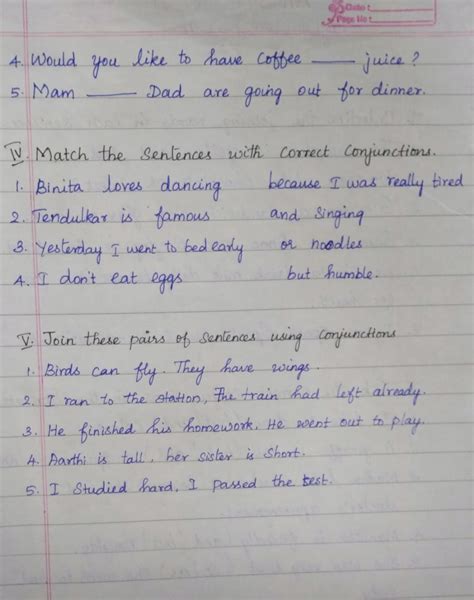 Date :
Page No :
4. Would you like to have coffee ____ juice ?
5. Mam ____ Dad are going out for dinner.
IV. Match the sentences with correct conjunctions.
1. Binita loves dancing because I was really tired
2. Tendulkar is famous and singing
3. Yesterday I went to bed early or noodles
4. I don't eat eggs but humble.
V. Join these pairs of sentences using conjunctions
1. Birds can fly. They have wings.
2. I ran to the station, The train had left already.
3. He finished his homework. He went out to play.
4. Aarthi is tall, her sister is short.
5. I studied hard. I passed the test.